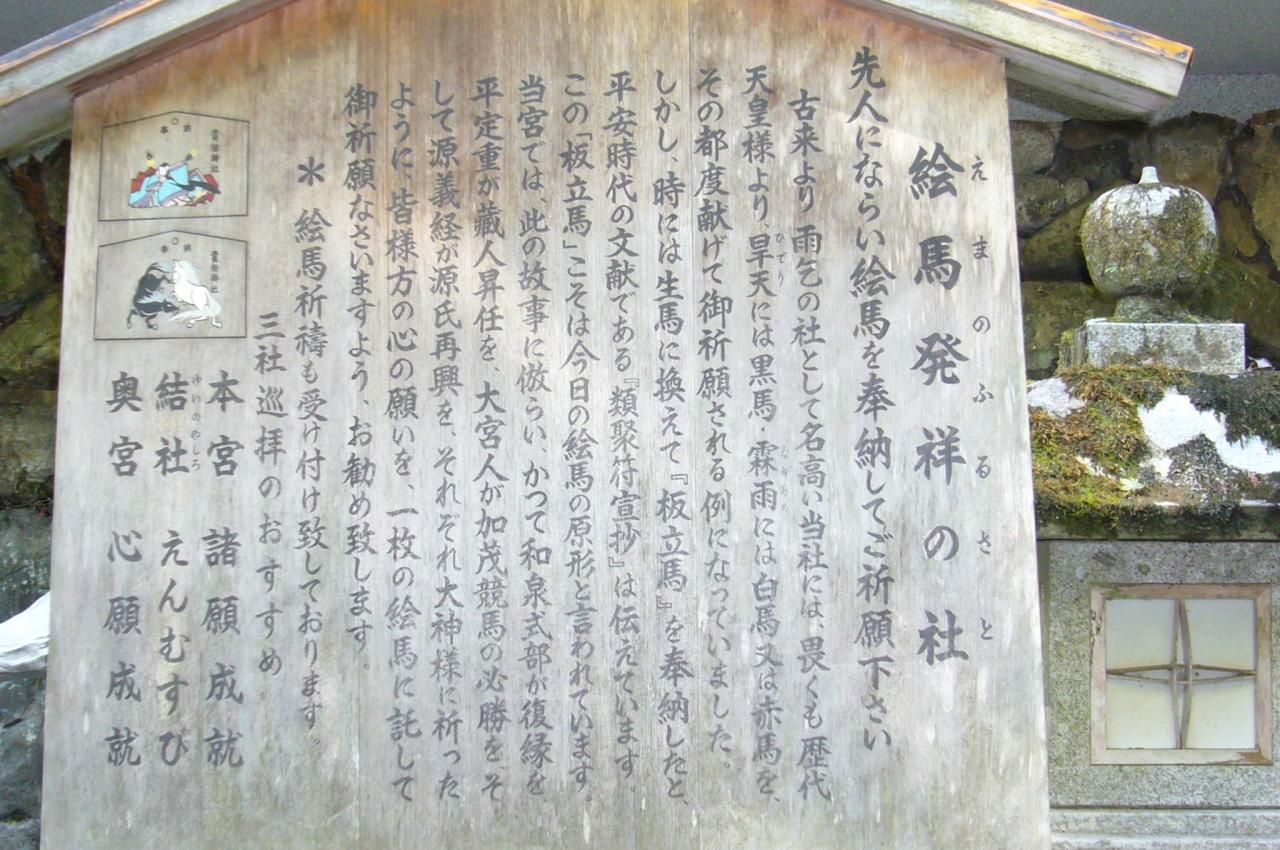 絵馬発祥の社
えまのふるさと
先人にならい絵馬を奉納してご祈願下さい
古来より雨乞の社として名高い当社には、畏くも歴代
天皇様より、旱天には黒馬・霖雨には白馬又は赤馬を、
ひでり
ながあめ
その都度献げて御祈願される例になっていました。
しかし、時には生馬に換えて『板立馬』を奉納したと、
平安時代の文献である『類聚符宣抄』は伝えています。
この「板立馬」こそは今日の絵馬の原形と言われています。
当宮では、此の故事に倣らい、かつて和泉式部が復縁を、
平定重が蔵人昇任を、大宮人が加茂競馬の必勝を、そ
して源義経が源氏再興を、それぞれ大神様に祈った
ように、皆様方の心の願いを、一枚の絵馬に託して
御祈願なさいますよう、お勧め致します。
＊絵馬祈禱も受け付け致しております。
三社巡拝のおすすめ
本宮 諸願成就
結社 えんむすび
ゆいのやしろ
奥宮 心願成就
貴船神社
奉
貴船神社
奉